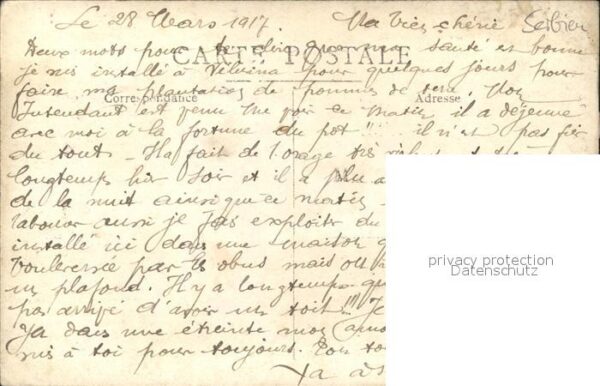 Le 28 Mars 1917. Ma bien chérie Serbien
Deux mots pour te dire que ma santé est bonne
CARTE POSTALE
je suis installé à Velvina pour quelques jours pour
faire ma plantation de pommes de terre. Mon
Correspondance Adresse
Intendant est venu me voir ce matin il a déjeuné
avec moi à la fortune du pot !! il n'est pas fier
du tout. Il a fait de l'orage très
longtemps hier soir et il a plu
de la nuit ainsi que ce matin
labourer aussi je fais exploiter du
installé ici dans une maison
bouleversée par les obus mais où
un plafond. Il y a longtemps
pas arrivé d'avoir un toit !!! Je
dans une étreinte
suis à toi pour toujours. Ton
privacy protection
Datenschutz